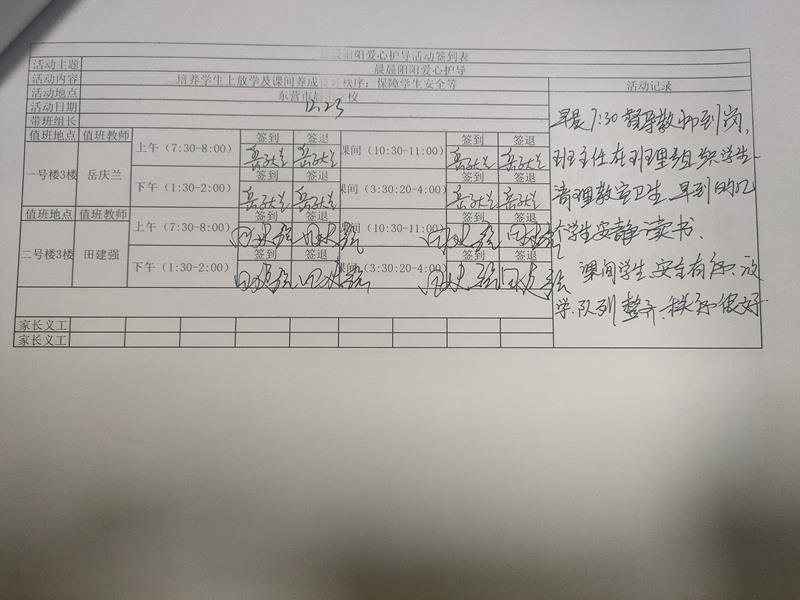 阳阳爱心护导活动签到表
活动主题 晨晨阳阳爱心护导 活动记录
活动内容 培养学生上放学及课间养成 秩序；保障学生安全等
活动地点 东营市 学校
活动日期 12.23
带班组长
值班地点 值班教师 上午（7:30-8:00） 签到 签退 课间（10:30-11:00） 签到 签退
岳庆兰 岳庆兰 岳庆兰 岳庆兰
一号楼3楼 岳庆兰 下午（1:30-2:00） 签到 签退 课间（3:30:20-4:00） 签到 签退
岳庆兰 岳庆兰 岳庆兰 岳庆兰
值班地点 值班教师 上午（7:30-8:00） 签到 签退 课间（10:30-11:00） 签到 签退
田建强 田建强 田建强 田建强
二号楼3楼 田建强 下午（1:30-2:00） 签到 签退 课间（3:30:20-4:00） 签到 签退
田建强 田建强 田建强 田建强
家长义工
家长义工
早晨7:30督导教师到岗，
班主任在班里组织学生
清理教室卫生，早到的几
个学生安静读书．
课间学生安全有序．放
学队列整齐．秩序很好